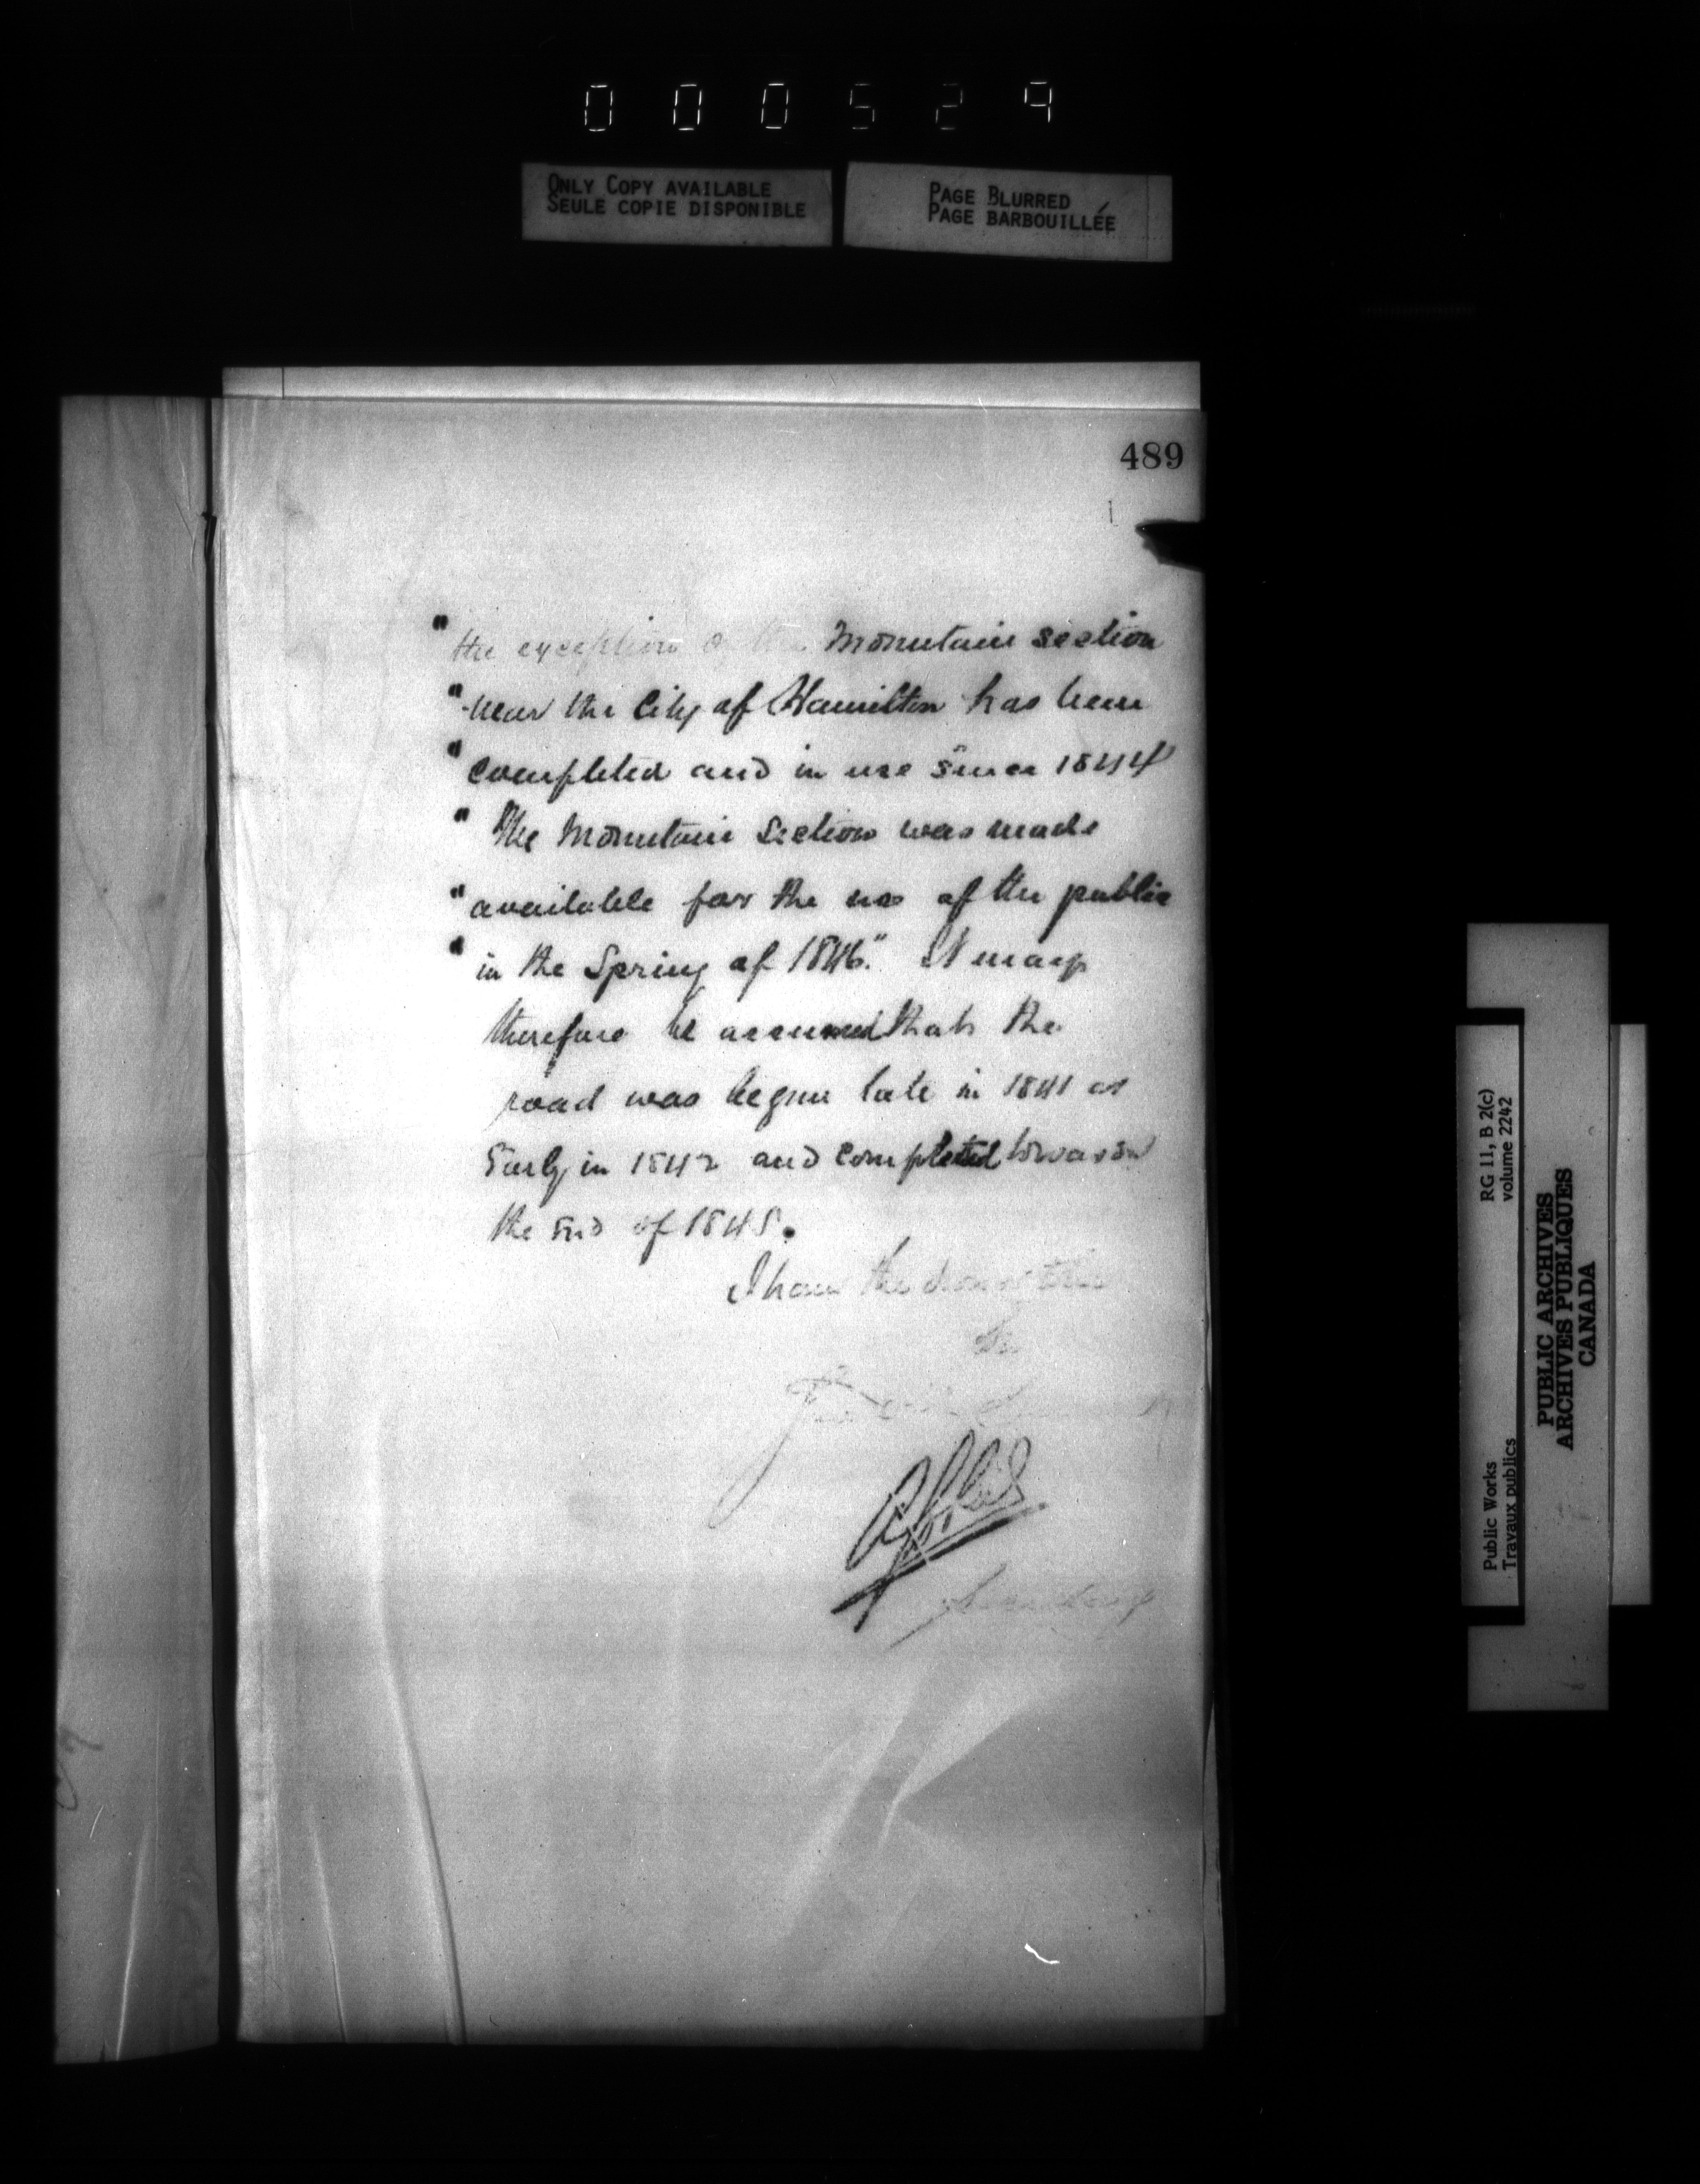 000529
ONLY COPY AVAILABLE
SEULE COPIE DISPONIBLE
PAGE BLURRED
PAGE BARBOUILLÉE
489
"the exception of the Mountain section
"near the City of Hamilton has been
"completed and in use since 1844
"The Mountain Section was made
"available for the use of the public
"in the Spring of 1846." It may
therefore be assumed that the
road was begun late in 1841 or
Early in 1842 and completed toward
the End of 1845.
I have the honor to
be
Secretary
RG 11, B 2(c)
volume 2242
Public Works
Travaux publics
PUBLIC ARCHIVES
ARCHIVES PUBLIQUES
CANADA